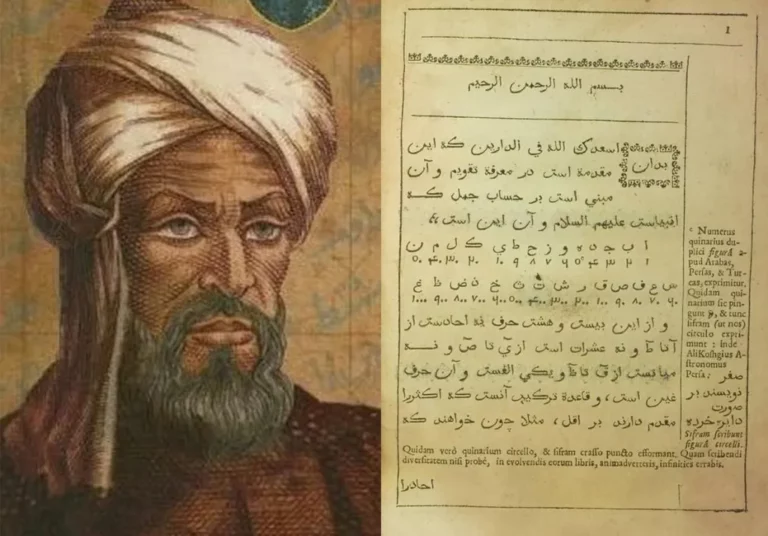 1
بسم الله الرحمن الرحيم
بدان اسعدك الله في الدارين كه اين
مقدمة است در معرفة تقويم و آن
مبني است بر حساب جمل كه
عليهم السلام و آن اين است
ا ب ج د ه و ز ح ط ي ك ل م ن
۱ ۲ ۳ ۴ ۵ ۶ ۷ ۸ ۹ ۱۰ ۲۰ ۳۰ ۴۰ ۵۰
س ع ف ص ق ر ش ت ث خ ذ ض ظ غ
۶۰ ۷۰ ۸۰ ۹۰ ۱۰۰ ۲۰۰ ۳۰۰ ۴۰۰ ۵۰۰ ۶۰۰ ۷۰۰ ۸۰۰ ۹۰۰ ۱۰۰۰
و از اين بيست و هشت حرف نه احادست از
آ تا ط و نه عشرات است از ي تا ص و نه
مياتست از ق تا ظ و يكي الفست و آن حرف
غين است، و قاعدة تركيب آنست كه اكثررا
مقدم دارند بر اقل، مثلا چون خواهند كه
احادرا
Numerus
quinarius du-
plici figurâ a-
pud Arabas,
Persas, & Tur-
cas, exprimitur.
Quidam qui-
narium sic pin-
gunt & tunc
sifram (ut nos)
circulo expri-
munt: inde
Ali Koshgius A-
stronomus
Persa: صفر
نويسند بر
صورت
دايره خرده
Sifram scribunt
figurâ circelli.
Quidam verò quinarium circello, & sifram crasso puncto efformant. Quam scribendi
diversitatem nisi probè, in evolvendis eorum libris, animadverteris, infinities errabis.